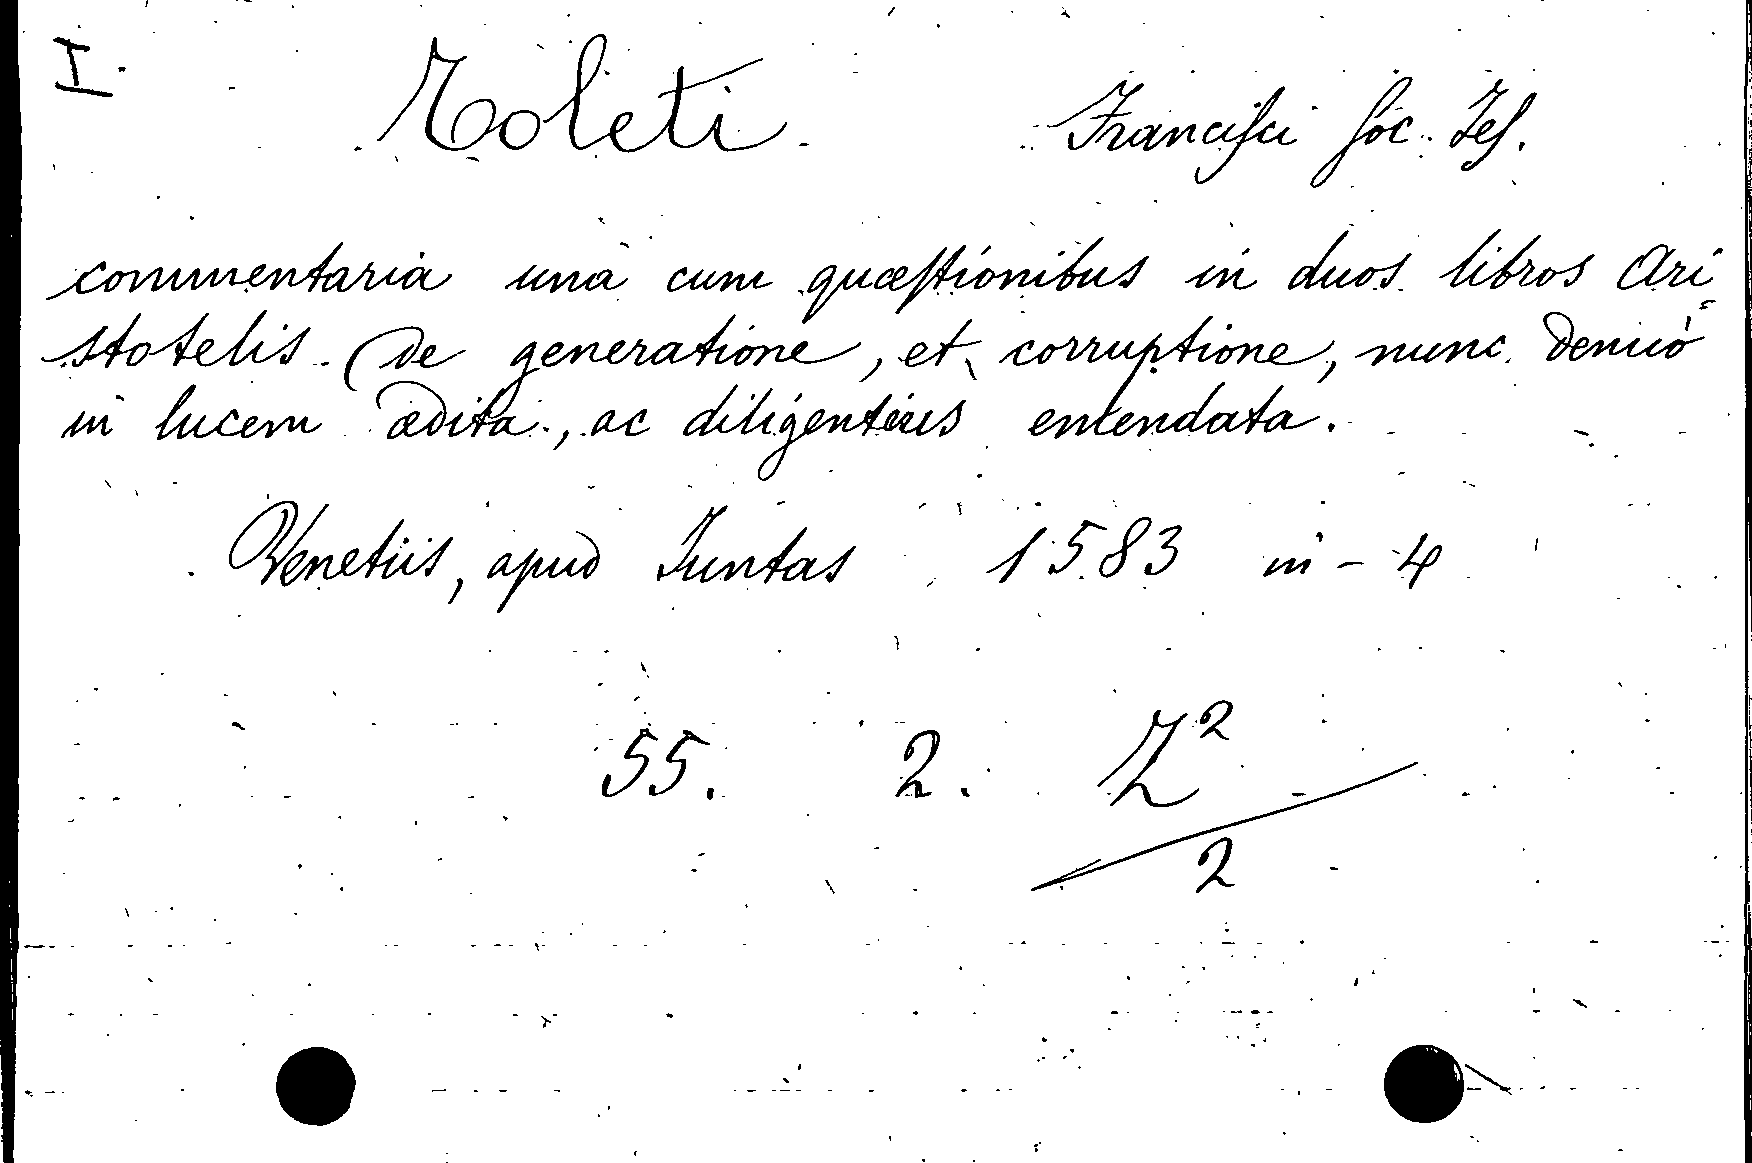 I.
Toleti Franciſci Soc. Jeſ.
commentaria una cum quæſtionibus in duos libros Ari
stotelis (de generatione, et corruptione, nunc denuò
in lucem ædita, ac diligentius emendata.
Venetiis, apud Juntas 1583 in-4
55. 2. Z²
2